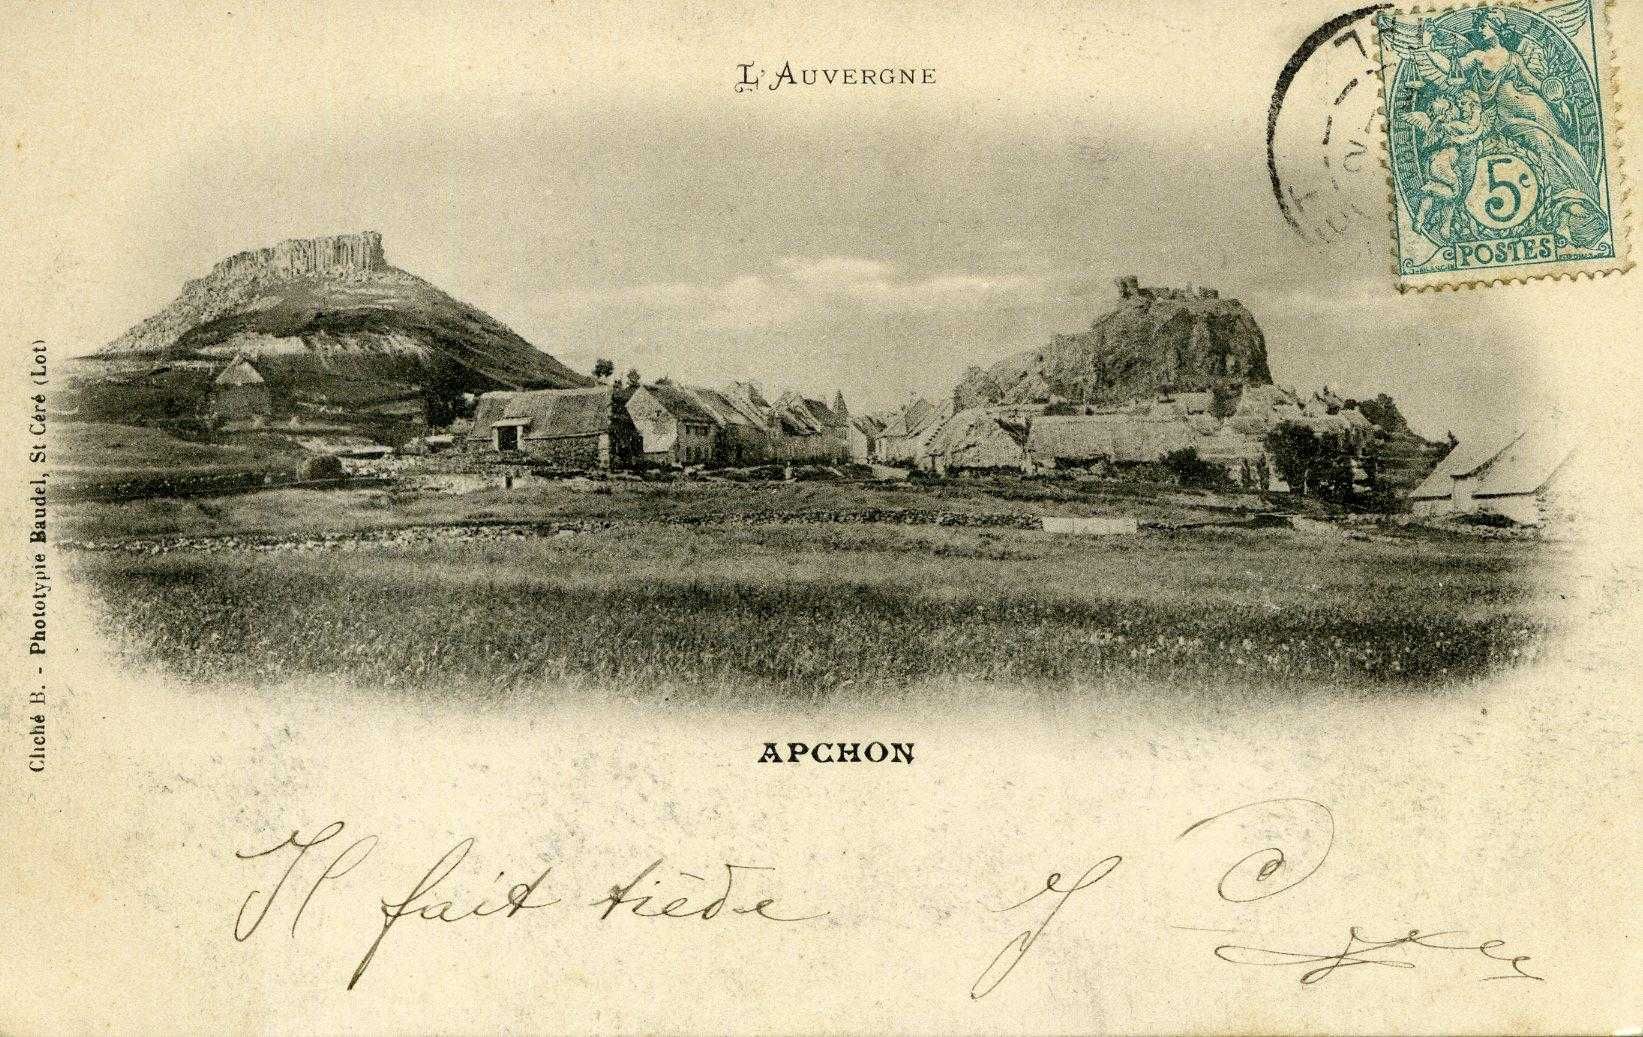 L'AUVERGNE
RÉPUBLIQUE FRANÇAISE
5c
POSTES
Cliché B. - Phototypie Baudel, St Céré (Lot)
APCHON
Il fait tiède J